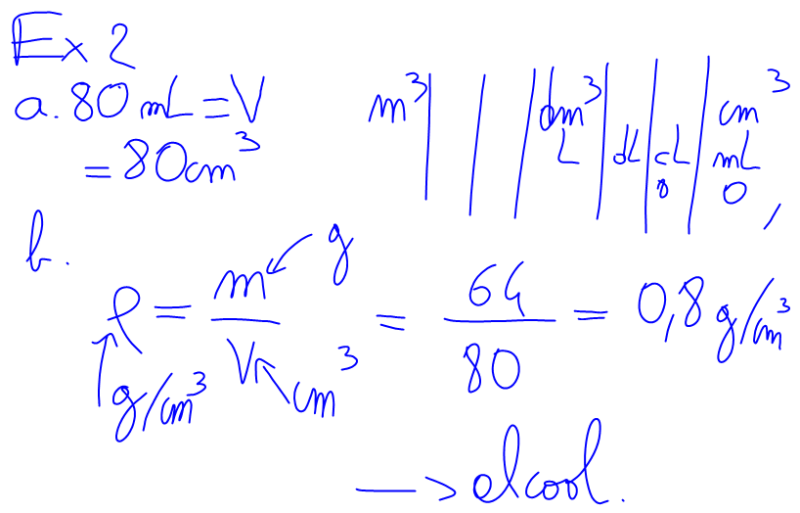 Ex 2
a. 80 mL = V
= 80 cm³
m³ | | | dm³ | | | cm³
L | dL | cL | mL
8 | 0,
b.
ρ = m/V = 64/80 = 0,8 g/cm³
g
g/cm³
cm³
→ alcool.